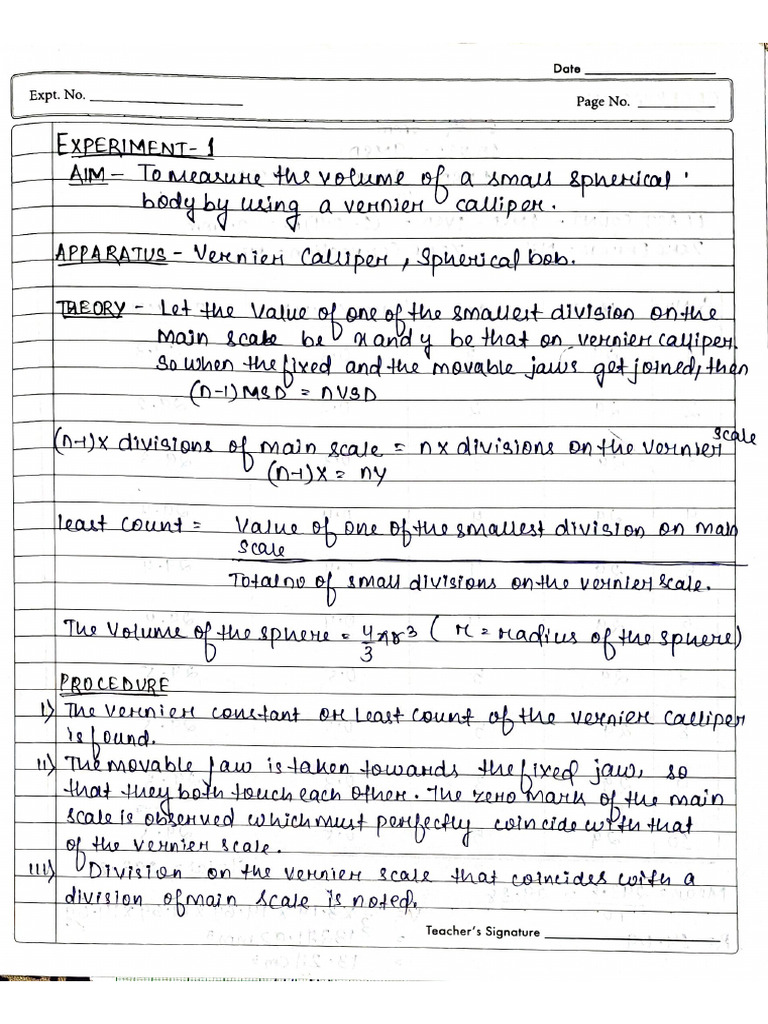 Date
Expt. No.
Page No.
EXPERIMENT-1
AIM - To measure the volume of a small spherical
body by using a vernier calliper.
APPARATUS - Vernier Calliper, Spherical bob.
THEORY - Let the value of one of the smallest division on the
main scale be x and y be that on vernier calliper.
So when the fixed and the movable jaws get joined, then
(n-1) MSD = nVSD
(n-1)x divisions of main scale = n x divisions on the vernier scale
(n-1)x = ny
least count = Value of one of the smallest division on main
scale
Total no of small divisions on the vernier scale.
The Volume of the sphere = 4/3 πr³ (r = radius of the sphere)
PROCEDURE
I) The vernier constant or least count of the vernier calliper
is found.
II) The movable jaw is taken towards the fixed jaw, so
that they both touch each other. The zero mark of the main
scale is observed which must perfectly coincide with that
of the vernier scale.
III) Division on the vernier scale that coincides with a
division of main scale is noted.
Teacher's Signature